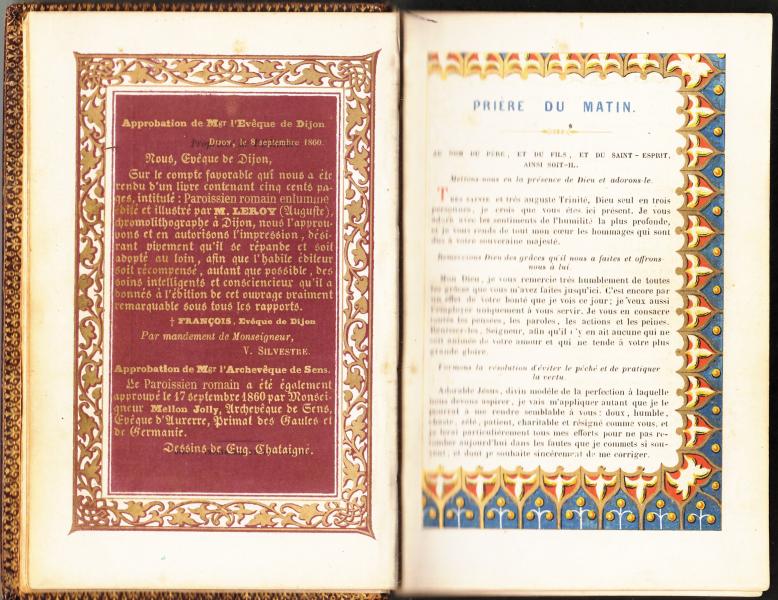 Approbation de Mgr l'Evêque de Dijon
Dijon, le 8 septembre 1860.
Nous, Evêque de Dijon,
Sur le compte favorable qui nous a été
rendu d'un livre contenant cinq cents pa-
ges, intitulé : Paroissien romain enluminé
édité et illustré par M. LEROY (Auguste),
chromolithographe à Dijon, nous l'approu-
vons et en autorisons l'impression, dési-
rant vivement qu'il se répande et soit
adopté au loin, afin que l'habile éditeur
soit récompensé, autant que possible, des
soins intelligents et consciencieux qu'il a
donnés à l'édition de cet ouvrage vraiment
remarquable sous tous les rapports.
† FRANÇOIS, Evêque de Dijon
Par mandement de Monseigneur,
V. SILVESTRE.
Approbation de Mgr l'Archevêque de Sens.
Le Paroissien romain a été également
approuvé le 17 septembre 1860 par Monsei-
gneur Mellon Jolly, Archevêque de Sens,
Evêque d'Auxerre, Primat des Gaules et
de Germanie.
Dessins de Eug. Chataigné.
PRIÈRE DU MATIN.
AU NOM DU PÈRE, ET DU FILS, ET DU SAINT-ESPRIT,
AINSI SOIT-IL.
Mettons-nous en la présence de Dieu et adorons-le.
TRÈS SAINTE et très auguste Trinité, Dieu seul en trois
personnes, je crois que vous êtes ici présent. Je vous
adore avec les sentiments de l'humilité la plus profonde,
et je vous rends de tout mon cœur les hommages qui sont
dus à votre souveraine majesté.
Remercions Dieu des grâces qu'il nous a faites et offrons-
nous à lui.
Mon Dieu, je vous remercie très humblement de toutes
les grâces que vous m'avez faites jusqu'ici. C'est encore par
un effet de votre bonté que je vois ce jour; je veux aussi
l'employer uniquement à vous servir. Je vous en consacre
toutes les pensées, les paroles, les actions et les peines.
Bénissez-les, Seigneur, afin qu'il n'y en ait aucune qui ne
soit animée de votre amour et qui ne tende à votre plus
grande gloire.
Formons la résolution d'éviter le péché et de pratiquer
la vertu.
Adorable Jésus, divin modèle de la perfection à laquelle
nous devons aspirer, je vais m'appliquer autant que je le
pourrai à me rendre semblable à vous: doux, humble,
chaste, zélé, patient, charitable et résigné comme vous, et
je ferai particulièrement tous mes efforts pour ne pas re-
tomber aujourd'hui dans les fautes que je commets si sou-
vent, et dont je souhaite sincèrement de me corriger.